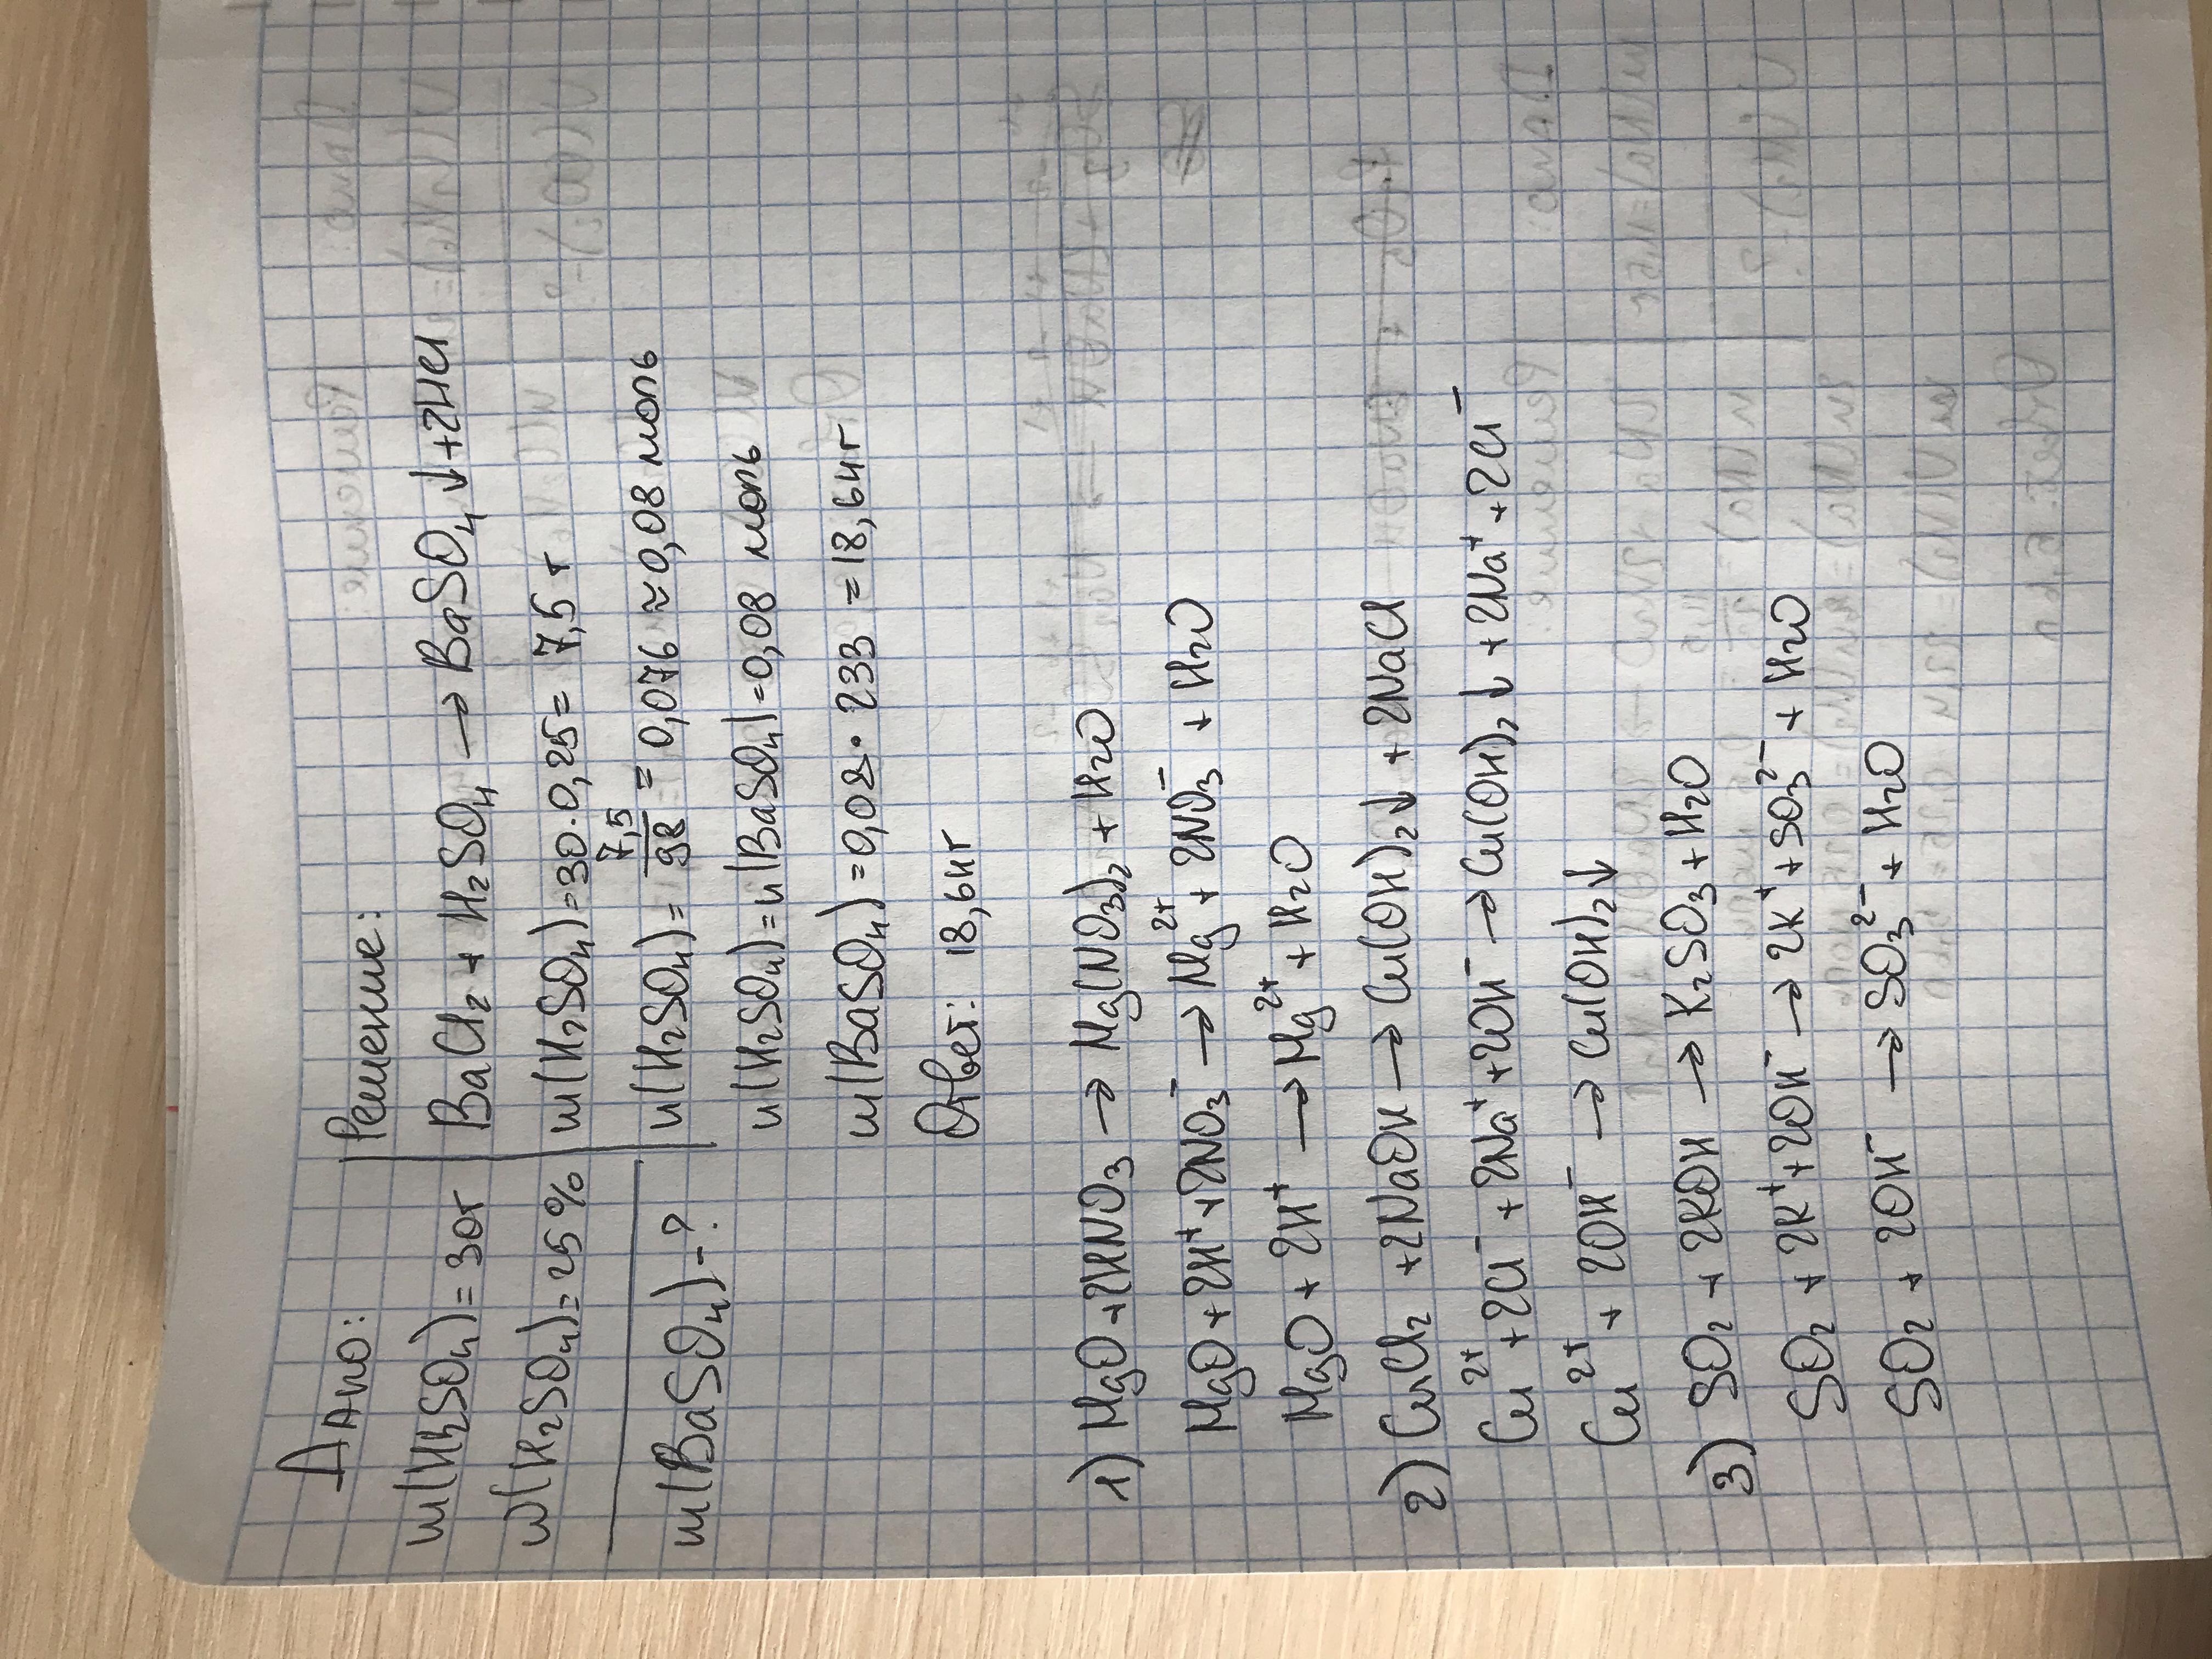 Дано:
m(H₂SO₄)=30г
w(H₂SO₄)=25%
m(BaSO₄)-?
Решение:
BaCl₂ + H₂SO₄ → BaSO₄↓+2HCl
m(H₂SO₄)=30·0,25= 7,5 г
n(H₂SO₄)= 7,5/98 = 0,076 ≈ 0,08 моль
n(H₂SO₄)=n(BaSO₄)=0,08 моль
m(BaSO₄)=0,08·233 =18,64г
Ответ: 18,64г
1) MgO +2HNO₃ → Mg(NO₃)₂ + H₂O
MgO+2H⁺+2NO₃⁻ → Mg²⁺+2NO₃⁻ + H₂O
MgO + 2H⁺ → Mg²⁺ + H₂O
2) CuCl₂ +2NaOH → Cu(OH)₂↓ + 2NaCl
Cu²⁺ +2Cl⁻ + 2Na⁺+2OH⁻ → Cu(OH)₂↓ + 2Na⁺+2Cl⁻
Cu²⁺ + 2OH⁻ → Cu(OH)₂↓
3) SO₂ + 2KOH → K₂SO₃ + H₂O
SO₂ + 2K⁺+2OH⁻ → 2K⁺+SO₃²⁻ + H₂O
SO₂ + 2OH⁻ → SO₃²⁻ + H₂O